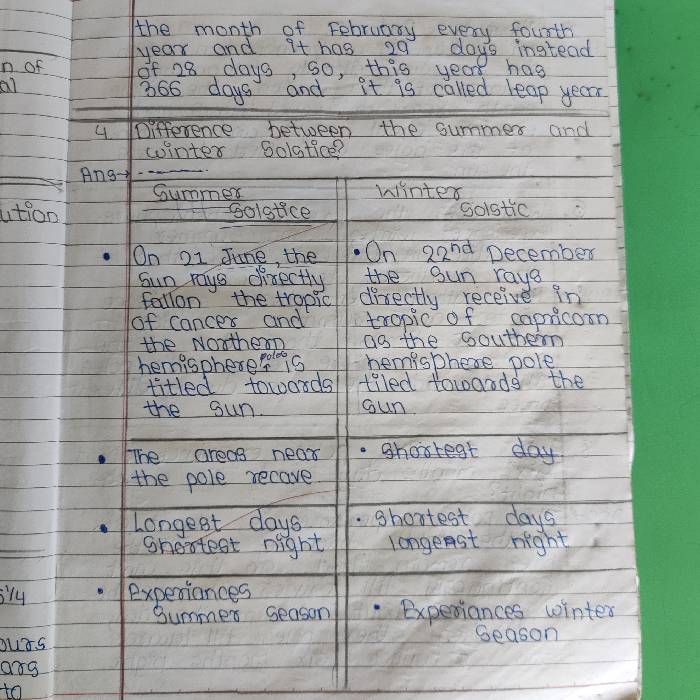 the month of February every fourth
year and it has 29 days instead
of 28 days, so, this year has
366 days and it is called leap year
4. Difference between the summer and
winter Solstice?
Ans→
Summer
Solstice
On 21 June, the
Sun rays directly
fallon the tropic
of cancer and
the Northern
hemisphere poles is
titled towards
the sun.
The areas near
the pole recave
Longest days
Shortest night
Experiances
Summer season
Winter
Solstic
On 22nd December
the Sun rays
directly receive in
tropic of capricorn
as the southern
hemisphere pole
tiled towards the
sun
Shortest day
Shortest days
longenst night
Experiances winter
Season
n of
al
ution
5¼
ours
ars
to